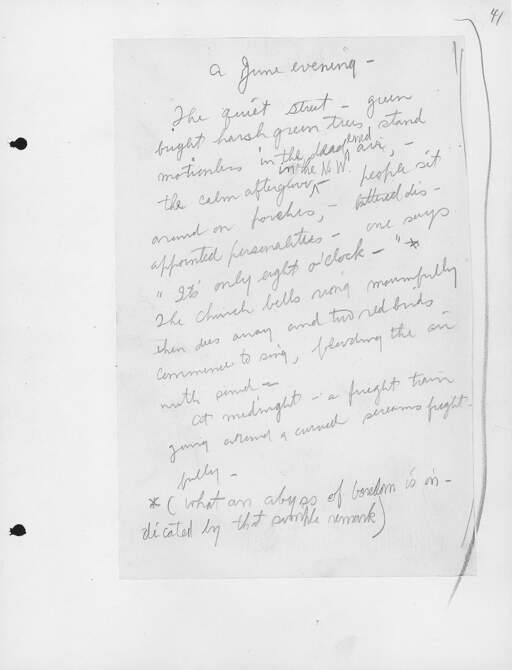 41
A June evening –
The quiet street – green
bright harsh green trees stand
motionless in the deadened air, –
the calm afterglow in the N.W. –
people sit
around on porches, – battered dis-
appointed personalities – one says
" Its only eight o'clock – " *
The church bells ring mournfully
then dies away and two red birds
commence to sing, flooding the air
with sound –
At midnight – a freight train
going around a curved screams fright-
fully –
* ( What an abyss of boredom is in-
dicated by that simple remark)